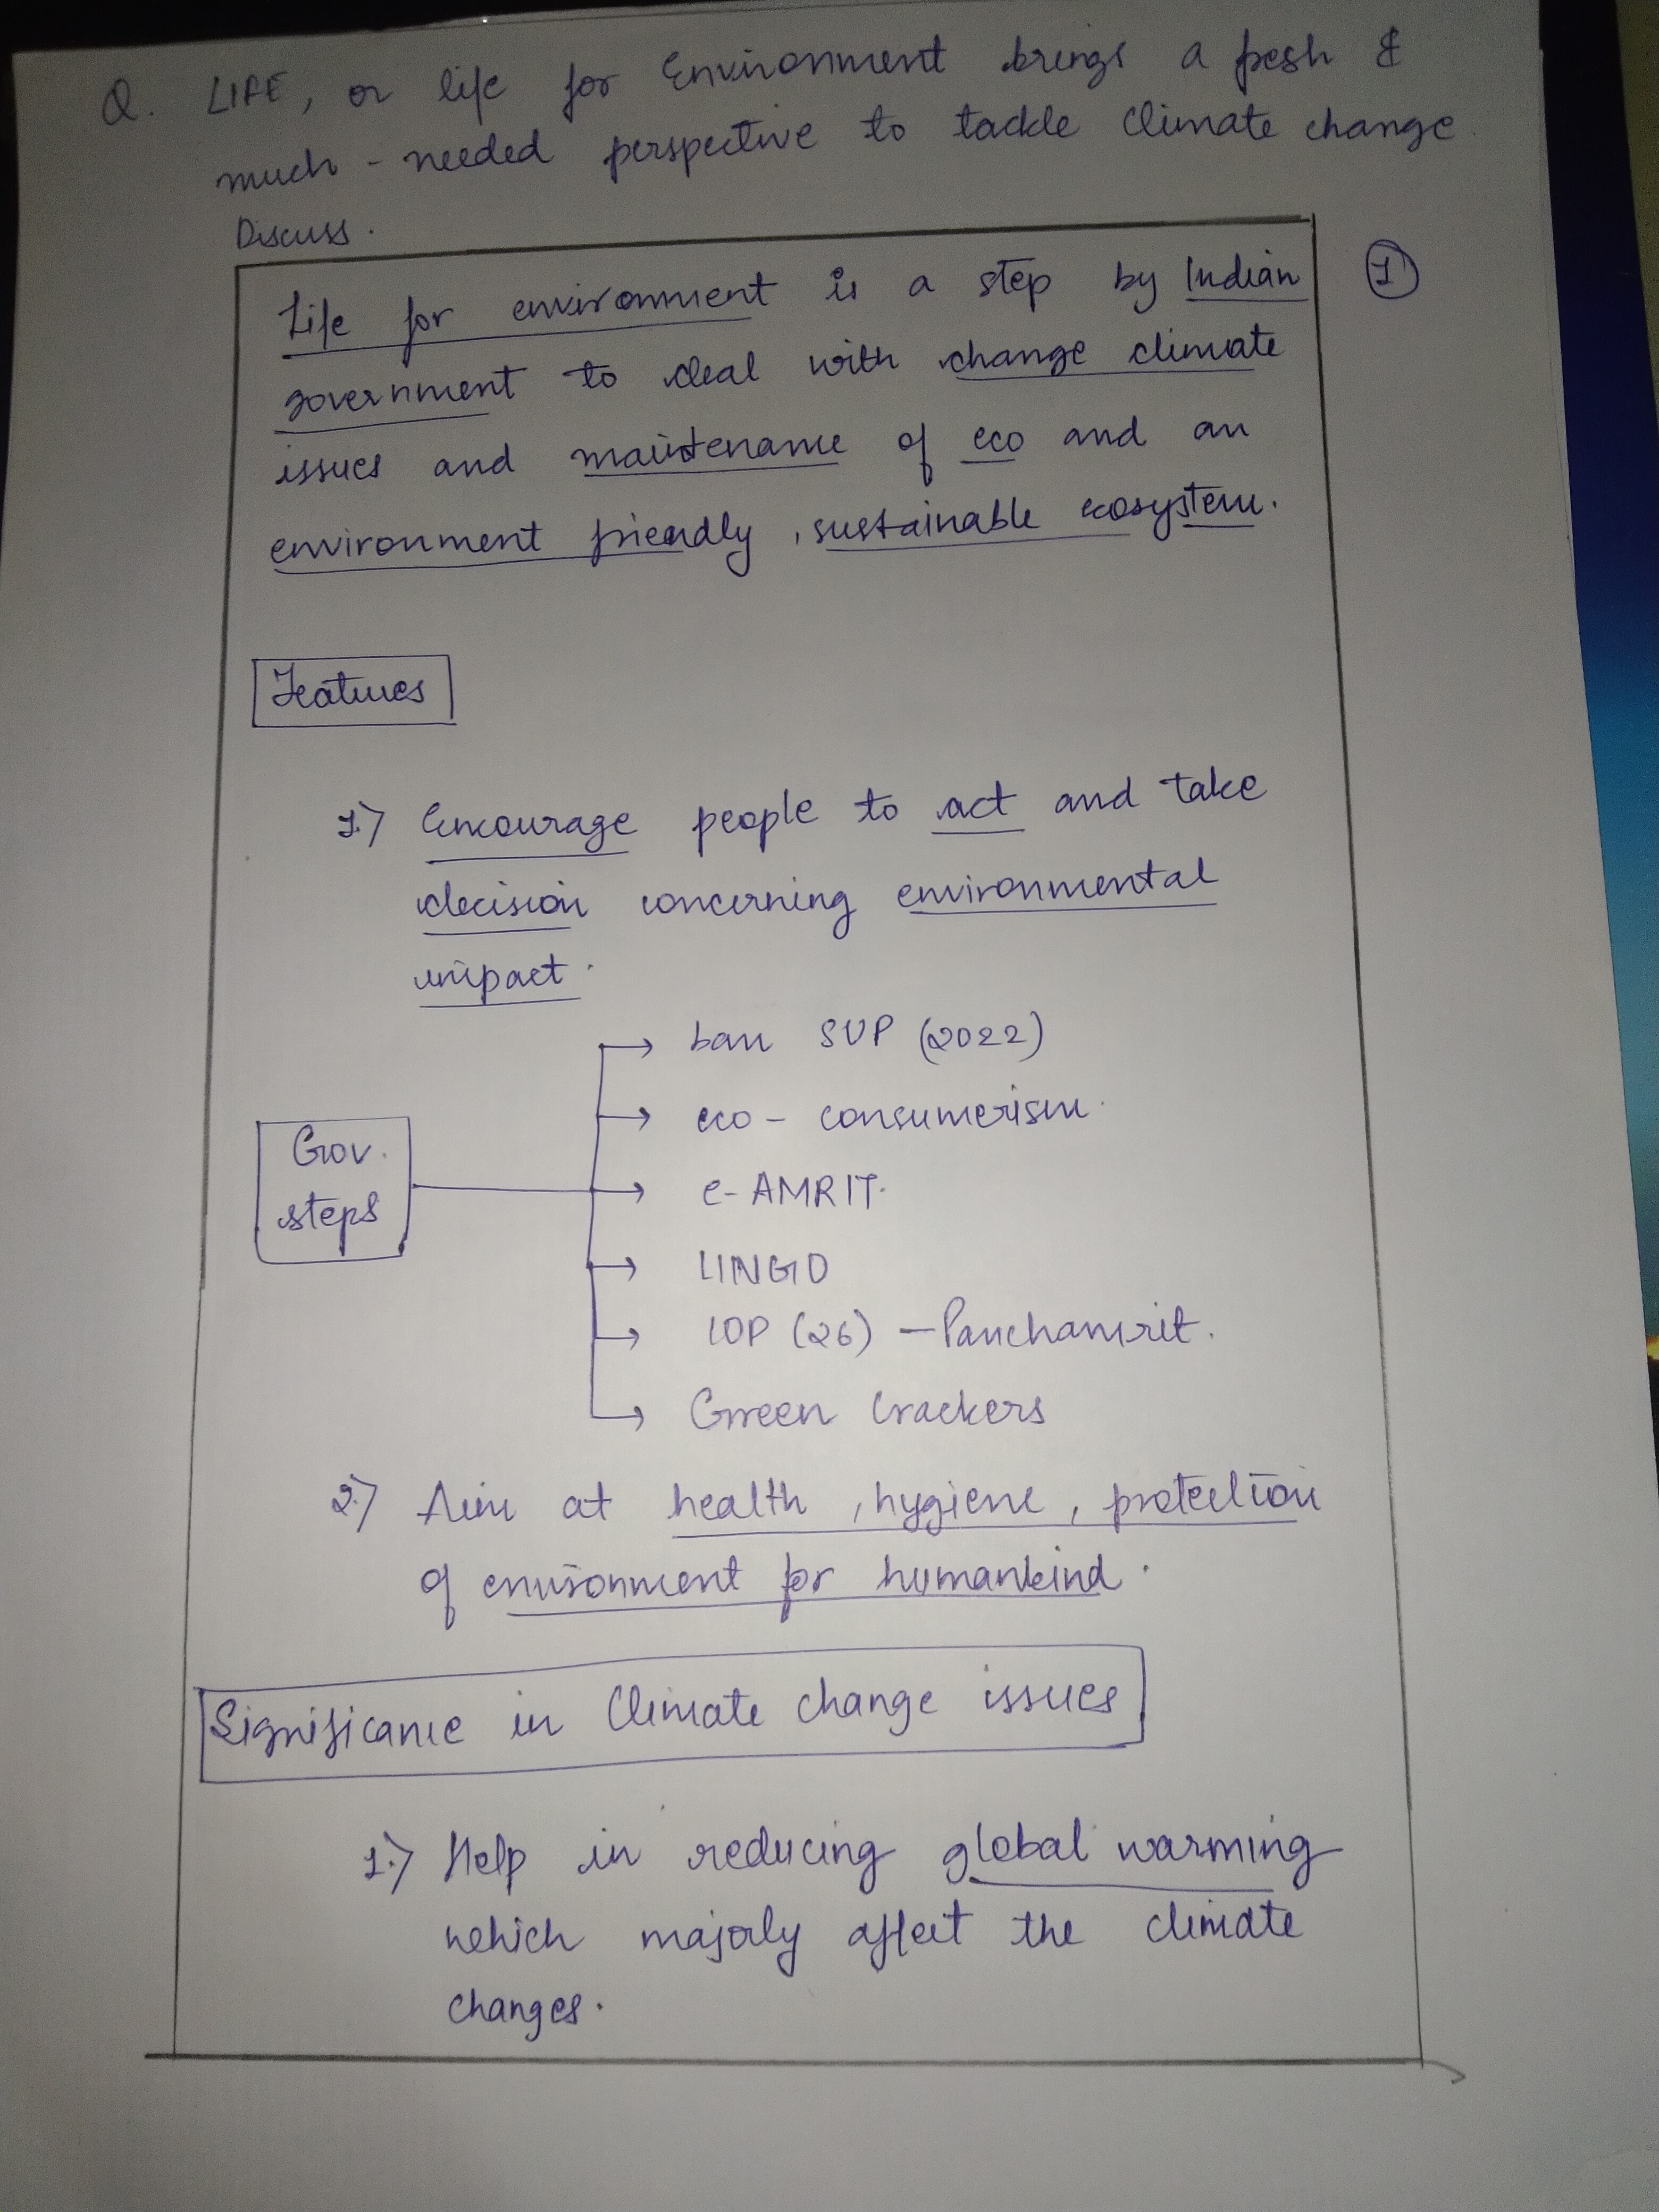 Q. LIFE, or life for Environment brings a fresh &
much-needed perspective to tackle Climate change.
Discuss.
1
Life for environment is a step by Indian
government to deal with change climate
issues and maintenance of eco and an
environment friendly, sustainable ecosystem.
Features
1.) Encourage people to act and take
decision concerning environmental
impact.
Gov.
steps
→ ban SUP (2022)
→ eco-consumerism.
→ e-AMRIT.
→ LINGO
→ COP (26) – Panchamrit.
→ Green Crackers
2.) Aim at health, hygiene, protection
of environment for humankind.
Significance in Climate change issues
1.) Help in reducing global warming
which majorly affect the climate
changes.